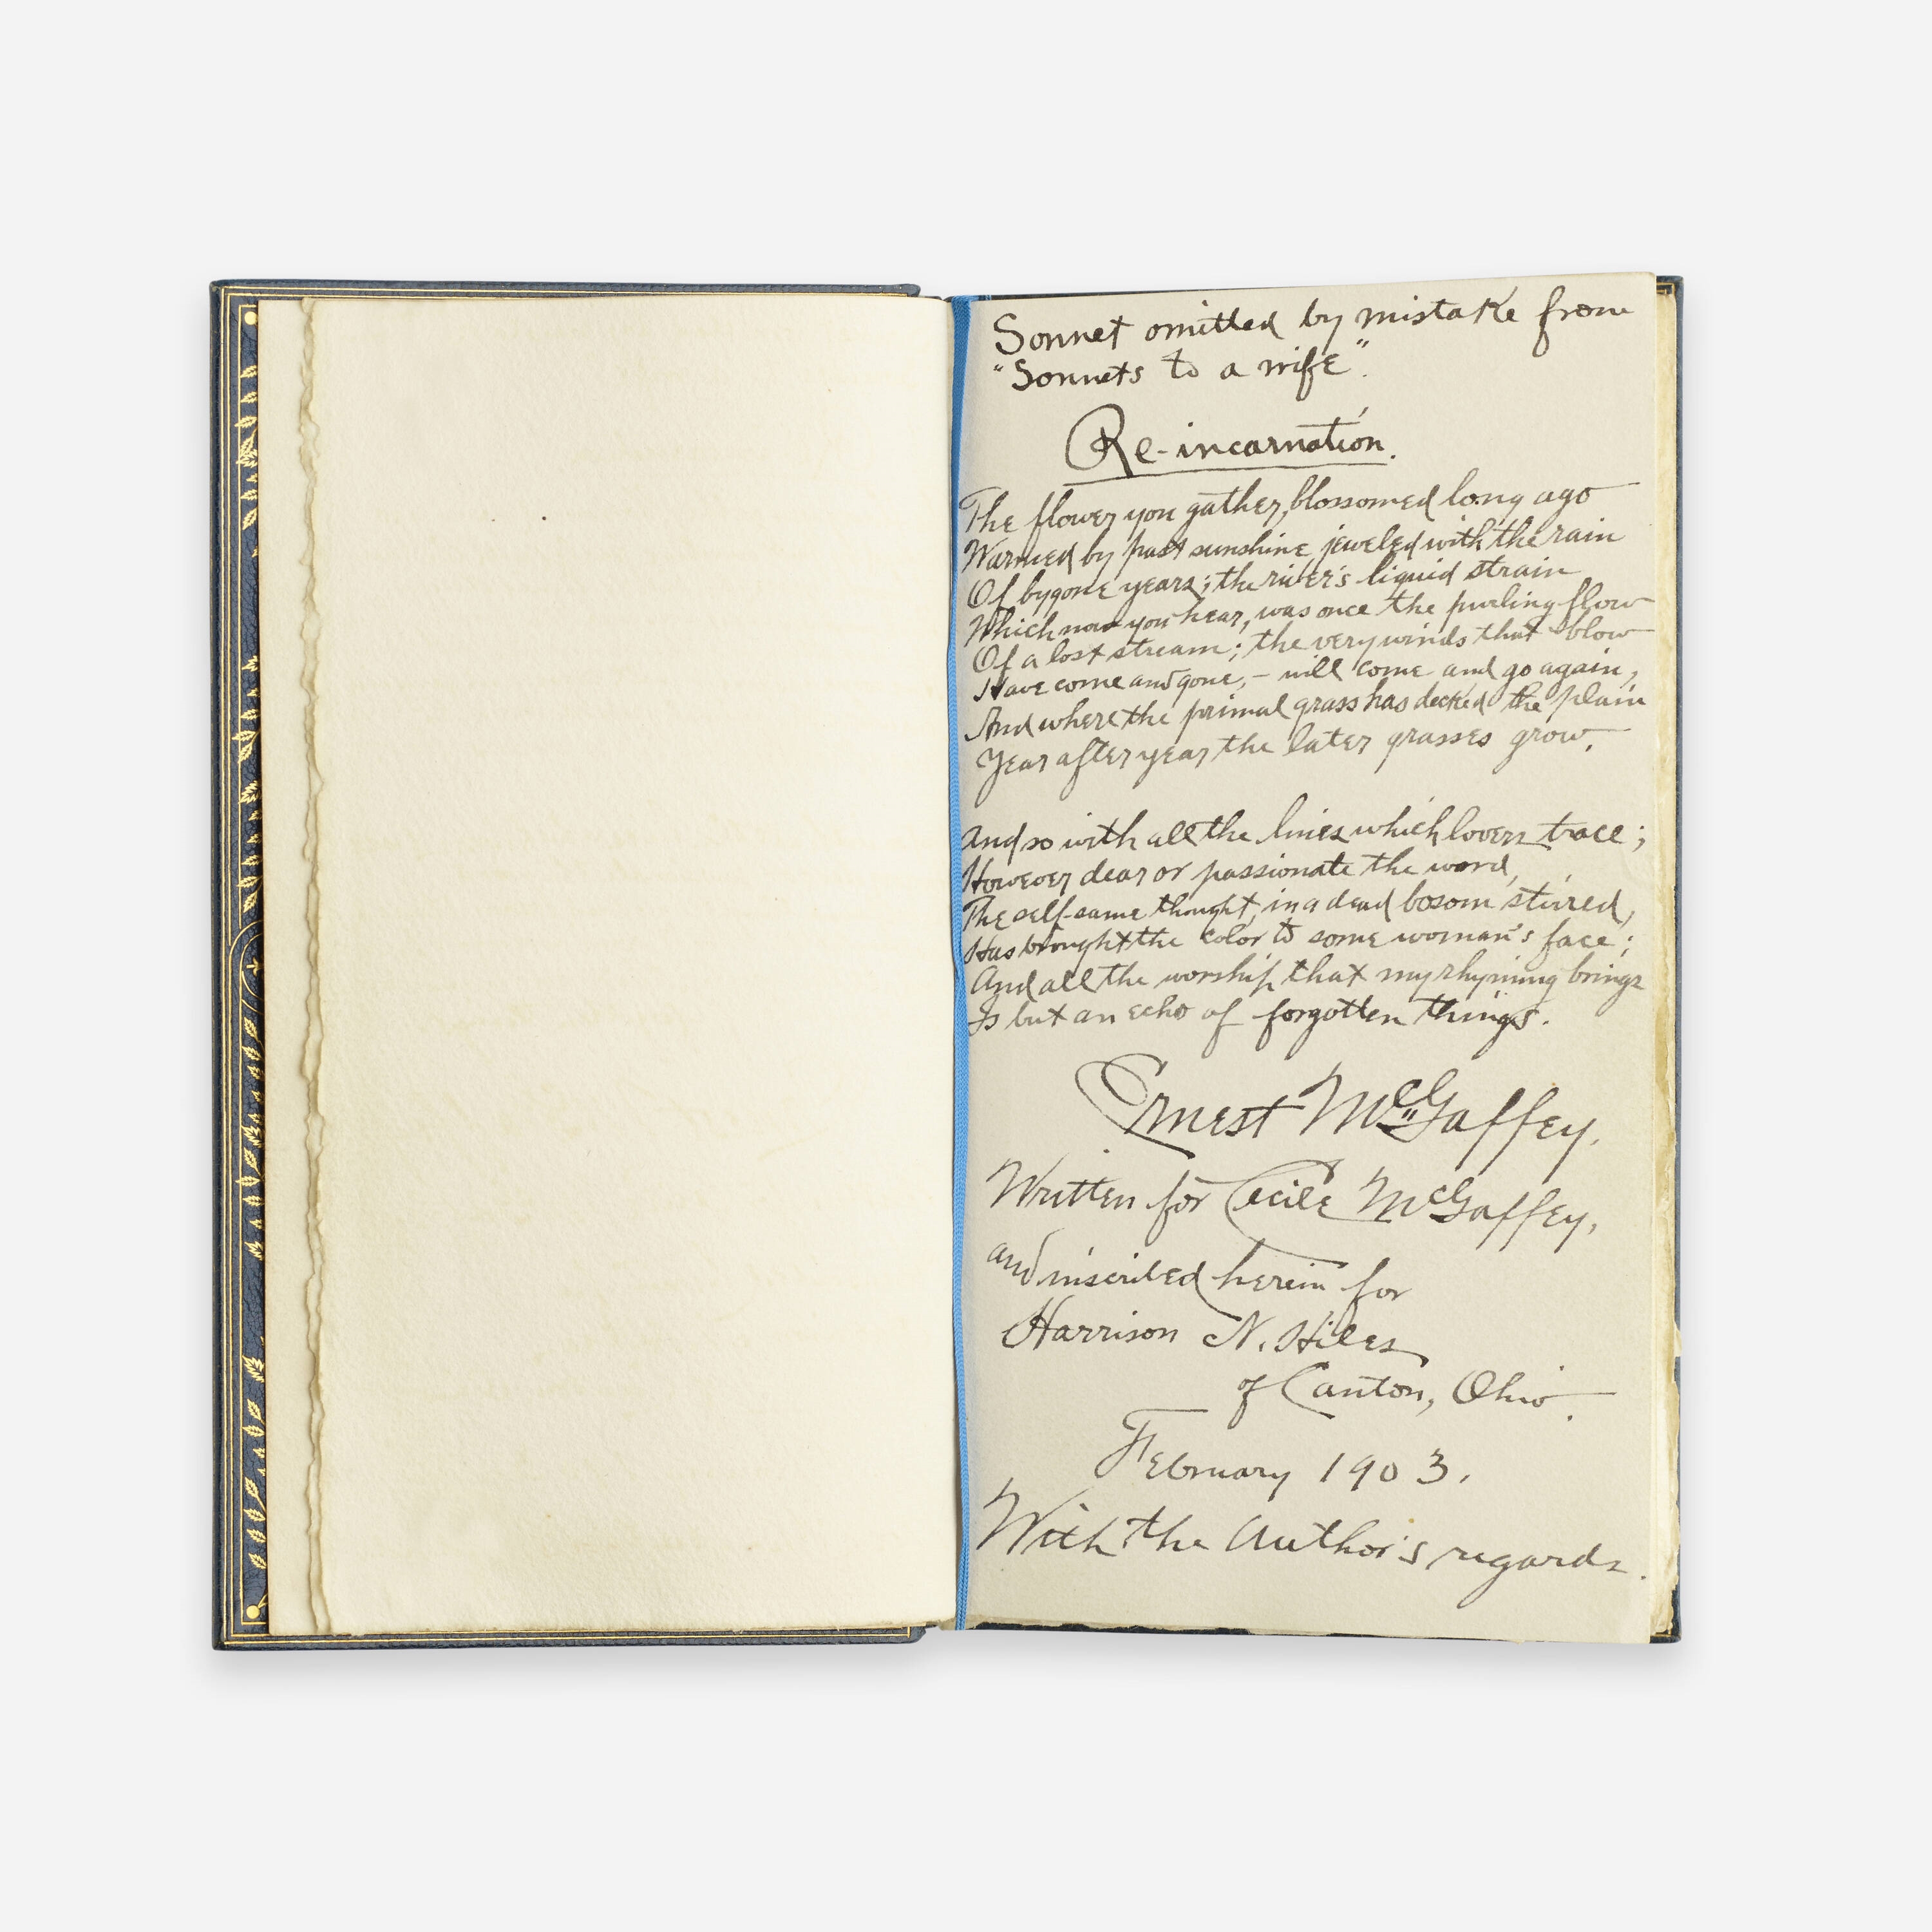 Sonnet omitted by mistake from
"Sonnets to a wife".
Re-incarnation.
The flower you gather, blossomed long ago
Warmed by past sunshine, jeweled with the rain
Of bygone years; the river's liquid strain
Which now you hear, was once the purling flow
Of a lost stream; the very winds that blow
Have come and gone, - will come and go again,
And where the primal grass has decked the plain
Year after year the later grasses grow.
And so with all the lines which lovers trace;
However dear or passionate the word,
The self-same thought, in a dead bosom stirred,
Has brought the color to some woman's face;
And all the worship that my rhyming brings
Is but an echo of forgotten things.
Ernest McGaffey.
Written for Cecile McGaffey,
and inscribed herein for
Harrison N. Hiles
of Canton, Ohio.
February 1903.
With the Author's regards.